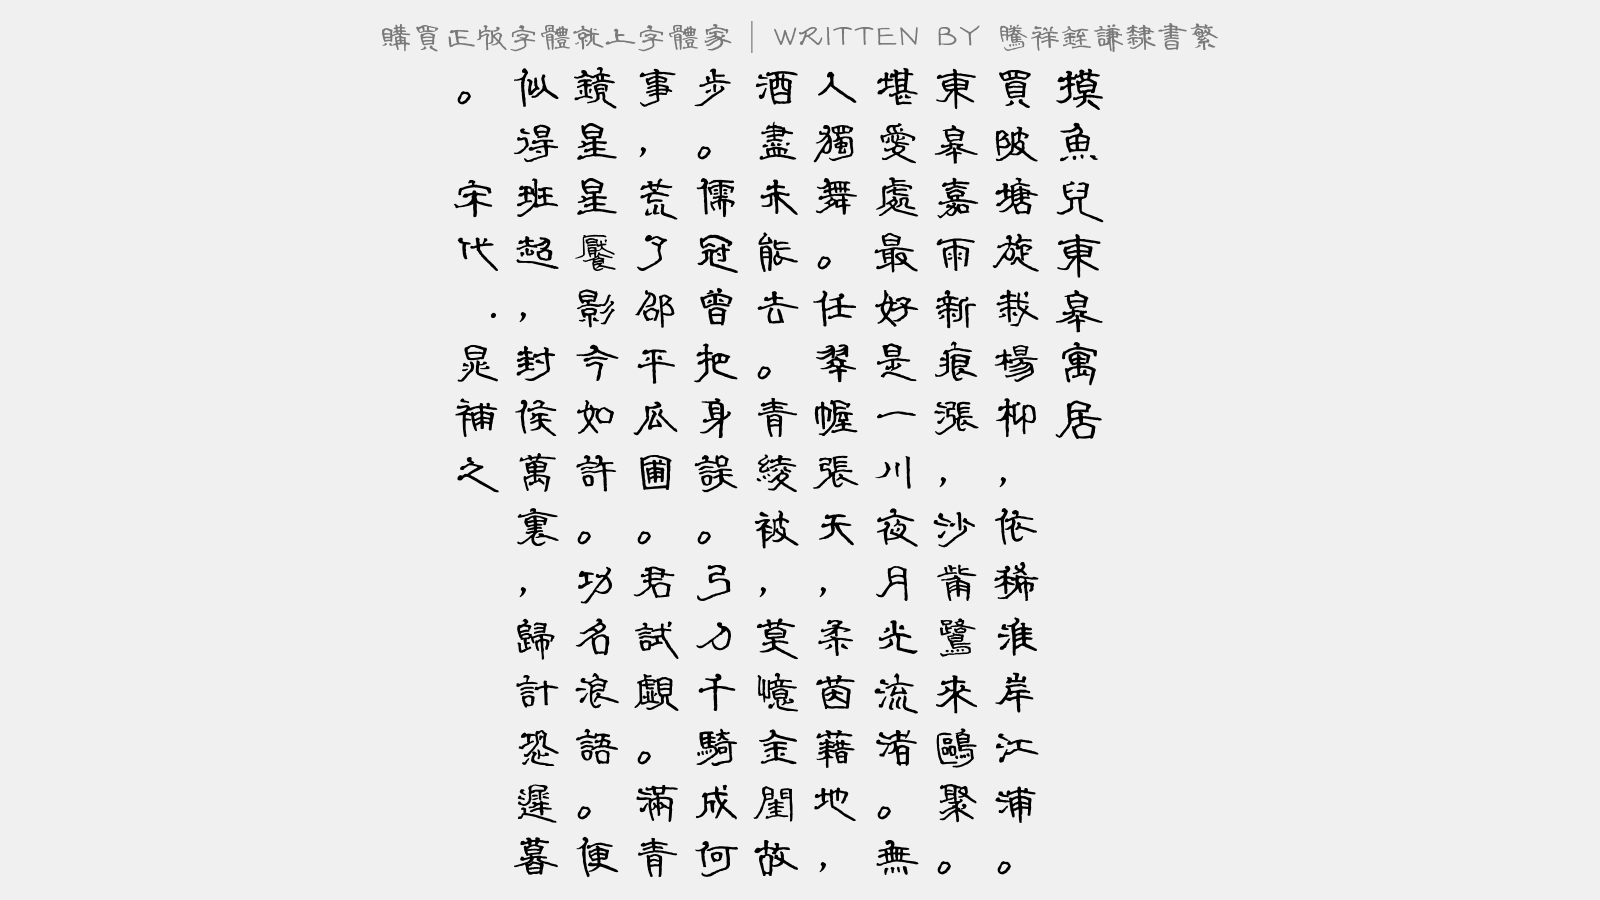 購買正版字體就上字體家 | WRITTEN BY 騰祥鉎謙隸書繁
摸魚兒東皋寓居
買陂塘旋栽楊柳，依稀淮岸江浦。
東皋嘉雨新痕漲，沙觜鷺來鷗聚。
堪愛處最好是一川夜月光流渚。無
人獨舞。任翠幄張天，柔茵藉地，
酒盡未能去。青綾被，莫憶金閨故
步。儒冠曾把身誤。弓刀千騎成何
事，荒了邵平瓜圃。君試覷。滿青
鏡星星鬢影今如許。功名浪語。便
似得班超，封侯萬裏，歸計恐遲暮
。 宋代．晁補之